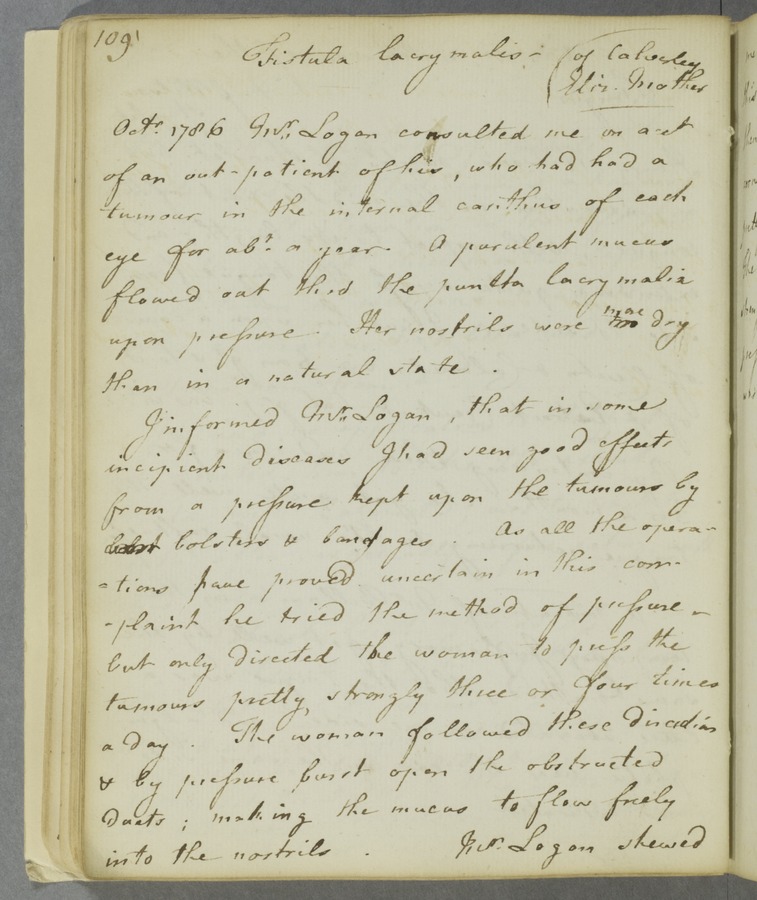 109
Fistula lacrymalis - of Calverley
Eliz. Mother
Octr. 1786 Mr. Logan consulted me on acct
of an out-patient of his, who had had a
tumour in the internal canthus of each
eye for abt. a year. A purulent mucus
flowed out thro the puncta lacrymalia
upon pressure. Her nostrils were more dry
than in a natural state.
I informed Mr. Logan, that in some
incipient diseases I had seen good effects
from a pressure kept upon the tumours by
bolsters & bandages. As all the opera-
-tions have proved uncertain in this com-
-plaint he tried the method of pressure -
but only directed the woman to press the
tumours pretty strongly three or four times
a day. The woman followed these directions
& by pressure burst open the obstructed
ducts; making the mucus to flow freely
into the nostrils. Mr. Logan shewed